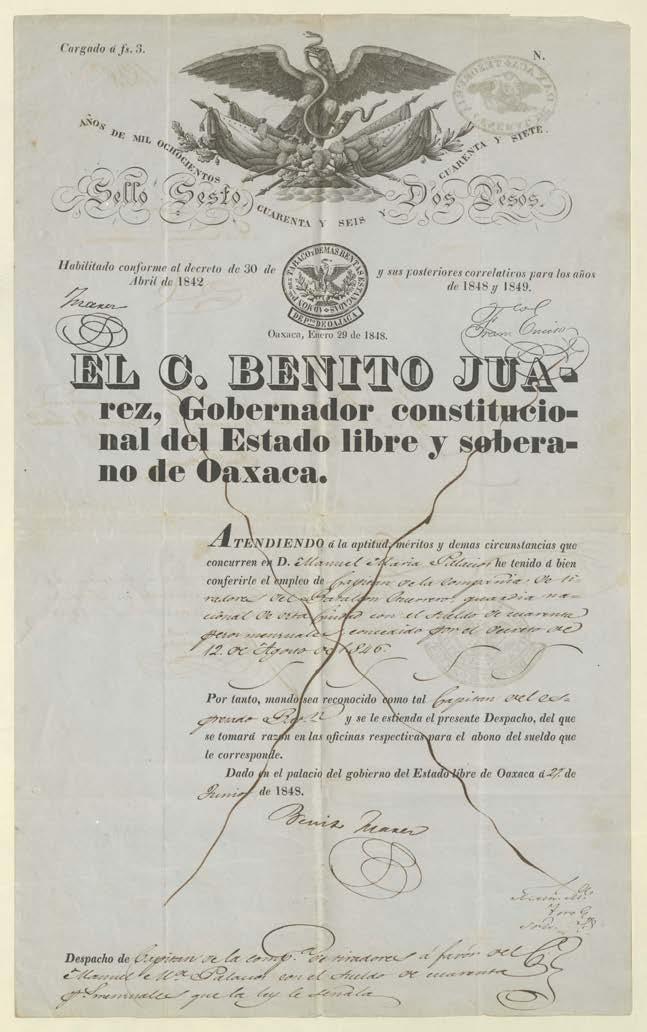 Cargado á fs. 3.
N.
AÑOS DE MIL OCHOCIENTOS
CUARENTA Y SEIS Y
CUARENTA Y SIETE.
Sello Sesto,
Dos Pesos.
Habilitado conforme al decreto de 30 de
Abril de 1842
TABACO Y DEMAS RENTAS ESTANCADAS
DE OAJACA
y sus posteriores correlativos para los años
de 1848 y 1849.
Juarez
Oaxaca, Enero 29 de 1848.
EL C. BENITO JUA-
rez, Gobernador constitucio-
nal del Estado libre y sobera-
no de Oaxaca.
ATENDIENDO á la aptitud, méritos y demas circunstancias que
concurren en D. Manuel Maria Palacios he tenido á bien
conferirle el empleo de Capitan de la compañia de ti-
radores del Batallon Guerrero guardia na-
cional de esta Ciudad con el sueldo de cuarenta
pesos mensuales concedido por el decreto de
12. de Agosto de 1846.
Por tanto, mando sea reconocido como tal Capitan del es-
presado y se le estienda el presente Despacho, del que
se tomará razon en las oficinas respectivas para el abono del sueldo que
le corresponde.
Dado en el palacio del gobierno del Estado libre de Oaxaca á 27. de
Junio de 1848.
Benito Juarez
Despacho de Capitan de la comp.ª de tiradores á favor del C.
Manuel M.ª Palacios con el sueldo de cuarenta
p.s mensuales que la ley le señala